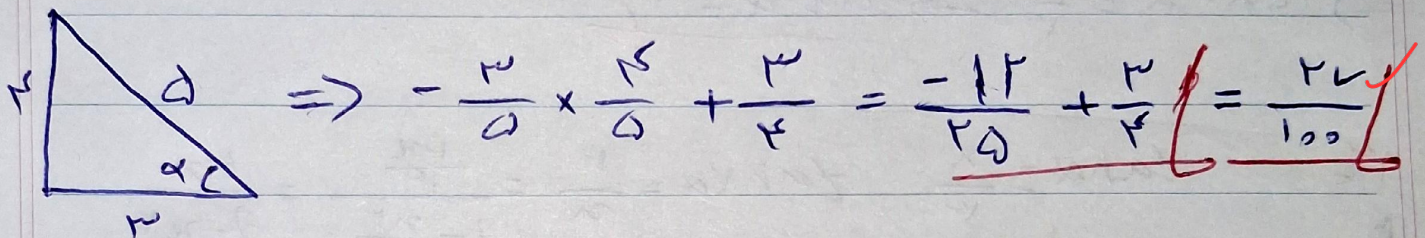 ۴
۵
α
۳
=> - ۳/۵ × ۴/۵ + ۳/۴ = -۱۲/۲۵ + ۳/۴ = ۲۷/۱۰۰